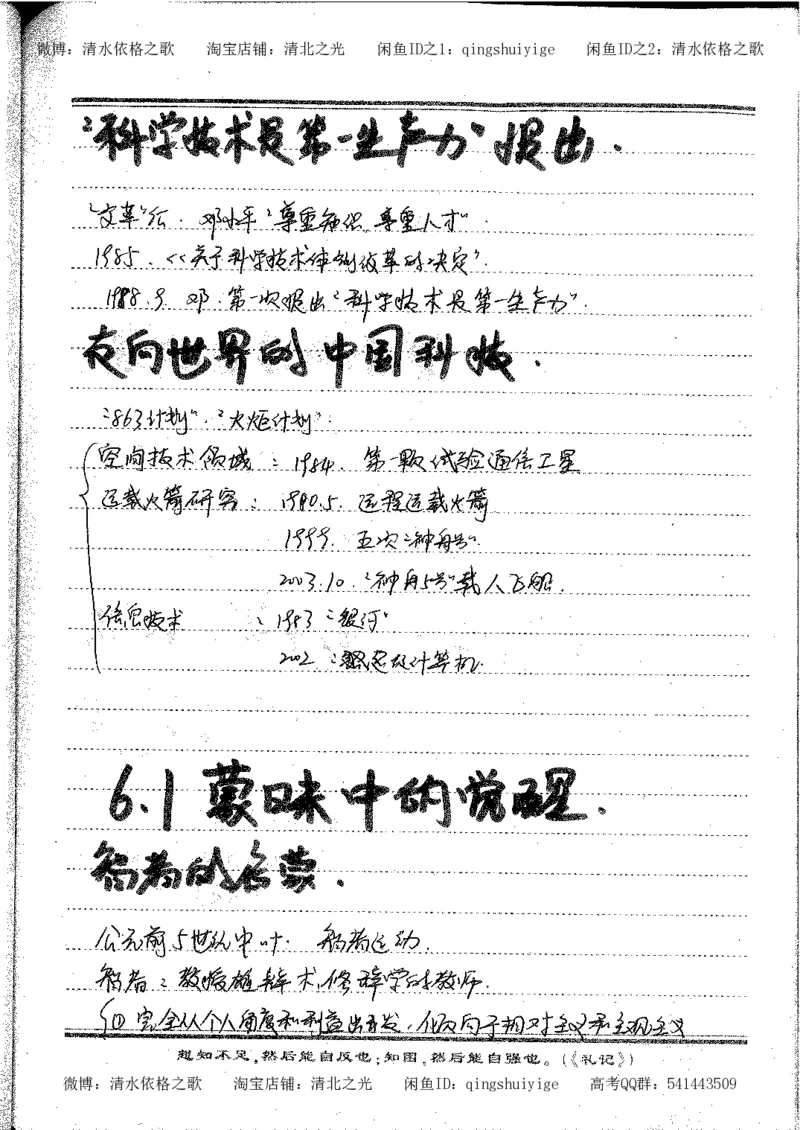 微博：清水依格之歌 淘宝店铺：清北之光 闲鱼ID之1：qingshuiyige 闲鱼ID之2：清水依格之歌
“科学技术是第一生产力”提出.
“文革”后. 邓小平“尊重知识 尊重人才”.
1985. 《关于科学技术体制改革的决定》.
1988.9 邓.第一次提出“科学技术是第一生产力”.
走向世界的中国科技.
“863计划”.“火炬计划”.
空间技术领域：1984. 第一颗试验通信卫星
运载火箭研究：1980.5. 远程运载火箭
1999. 五次“神舟号”.
2003.10.“神舟5号”载人飞船.
信息技术：1983“银河”
2002：计算机.
6.1 蒙昧中的觉醒.
智者的启蒙.
公元前5世纪中叶. 智者运动.
智者：教授雄辩术,修辞学的教师.
① 完全从个人角度和利益出发，倾向于相对主义和主观主义
知不足，然后能自反也；知困，然后能自强也。（《礼记》）
微博：清水依格之歌 淘宝店铺：清北之光 闲鱼ID：qingshuiyige 高考QQ群：541443509